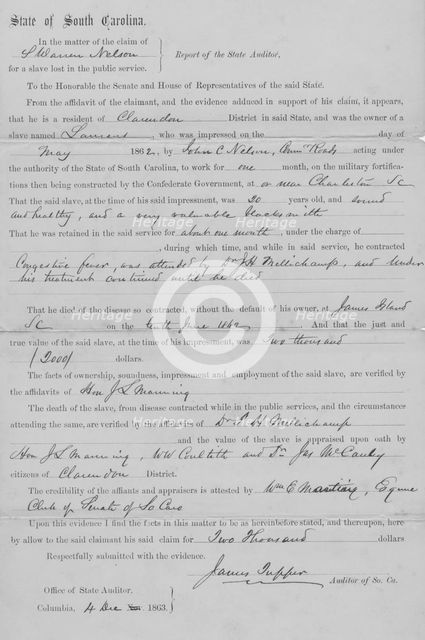 State of South Carolina.
In the matter of the claim of
S Warren Nelson
for a slave lost in the public service.
Report of the State Auditor.
To the Honorable the Senate and House of Representatives of the said State.
From the affidavit of the claimant, and the evidence adduced in support of his claim, it appears,
that he is a resident of Clarendon District in said State, and was the owner of
a slave named , who was impressed on the day of
May 1862, by John C Nelson, Comr Roads acting under
the authority of the State of South Carolina, to work for one month, on the military fortifica-
tions then being constructed by the Confederate Government, at or near Charleston SC
That the said slave, at the time of his said impressment, was 20 years old, and sound
and healthy, and a very valuable blacksmith
That he was retained in said service for about one month, under the charge of
, during which time, and while in said service, he contracted
Congestive fever, was attended by Dr J H Mellichamp, and under
his treatment continued until he died
That he died of the disease so contracted, without the default of his owner, at James Island
SC on the tenth June 1862. And that the just and
true value of the said slave, at the time of his impressment, was Two thousand
(2000) dollars.
The facts of ownership, soundness, impressment and employment of the said slave, are verified by
the affidavits of Hon J L Manning
The death of the slave, from disease contracted while in the public services, and the circumstances
attending the same, are verified by the affidavits of Dr J H Mellichamp
and the value of the slave is appraised upon oath by
Hon J L Manning, WW and Dr Jas McCauley
citizens of Clarendon District.
The credibility of the affiants and appraisers is attested by Wm E , Esquire
Clerk of Senate of So Caro
Upon this evidence I find the facts in this matter to be as hereinbefore stated, and thereupon, here
by allow to the said claimant his said claim for Two Thousand dollars.
Respectfully submitted with the evidence.
James Tupper
Auditor of So. Ca.
Office of State Auditor.
Columbia, 4 Dec 1863.
Heritage
Heritage
Heritage
Heritage